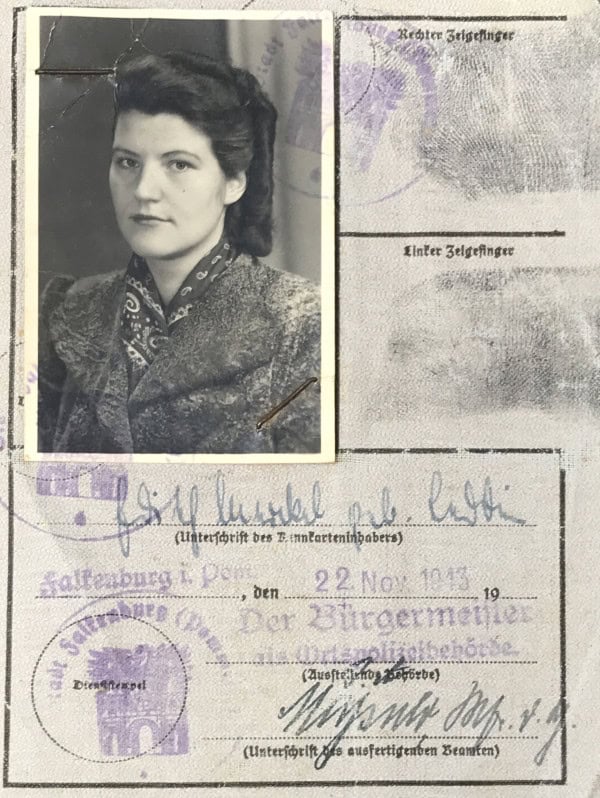 Rechter Zeigefinger
Linker Zeigefinger
Edith geb.
(Unterschrift des Kennkarteninhabers)
Falkenburg i. Pom. , den 22. Nov. 1943 19
Der Bürgermeister
als Ortspolizeibehörde.
(Ausstellende Behörde)
Stadt Falkenburg (Pomm.
Dienststempel
(Unterschrift des ausfertigenden Beamten)